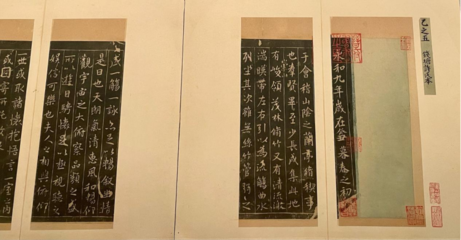 乙之五
永和九年歲在癸丑暮春之初
于會稽山陰之蘭亭脩稧事
也羣賢畢至少長咸集此地
有峻領茂林脩竹又有清流激
湍暎帶左右引以為流觴曲水
列坐其次雖無絲竹管絃之
盛一觴一詠亦足以暢敘幽情
是日也天朗氣清惠風和暢仰
觀宇宙之大俯察品類之盛
所以遊目騁懷足以極視聽之
娛信可樂也夫人之相與俯仰
一世或取諸懷抱悟言一室之內
或因寄所託放